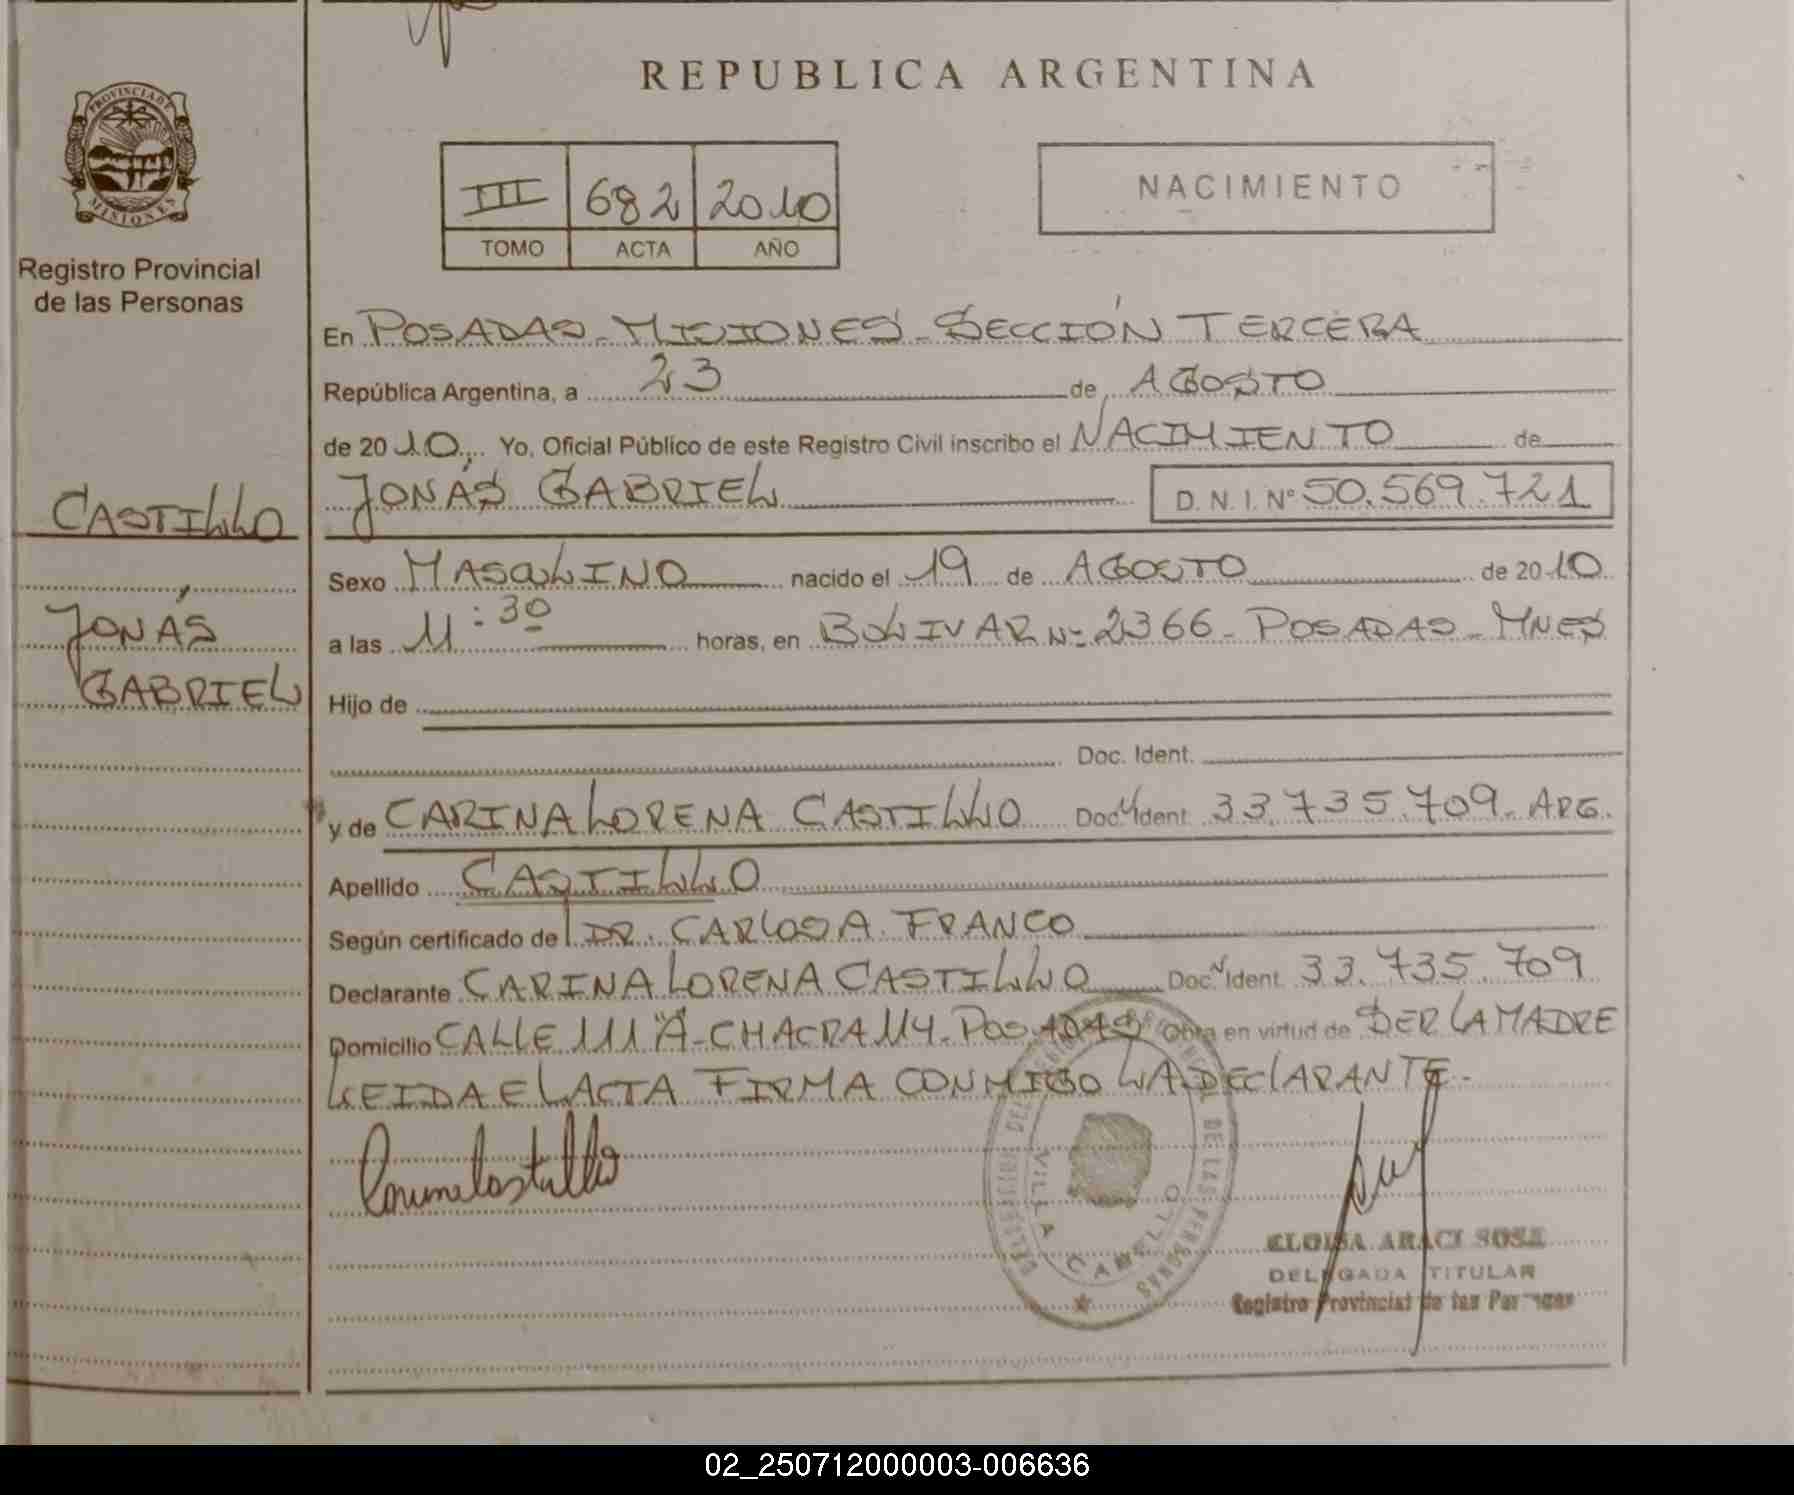 REPUBLICA ARGENTINA
PROVINCIA DE MISIONES
Registro Provincial
de las Personas
III 682 2010
TOMO ACTA AÑO
NACIMIENTO
En POSADAS - MISIONES - SECCIÓN TERCERA
República Argentina, a 23 de AGOSTO
de 2010, Yo, Oficial Público de este Registro Civil inscribo el NACIMIENTO de
JONÁS GABRIEL D. N. I. Nº 50.569.721
CASTILLO
JONÁS
GABRIEL
Sexo MASCULINO nacido el 19 de AGOSTO de 2010
a las 11:30 horas, en BOLIVAR Nº 2366 - POSADAS - MNES
Hijo de
Doc. Ident.
y de CARINA LORENA CASTILLO Doc. Ident. 33.735.709. ARG.
Apellido CASTILLO
Según certificado del DR. CARLOS A. FRANCO
Declarante CARINA LORENA CASTILLO Doc. Ident. 33.735.709
Domicilio CALLE 111 "A" - CHACRA 114 - POSADAS Obra en virtud de SER LA MADRE
LEIDA EL ACTA FIRMA CONMIGO LA DECLARANTE -
VILLA CABELLO
DE LAS PERSONAS
ELOISA ARACI SOSA
DELEGADA TITULAR
Registro Provincial de las Personas
02_250712000003-006636